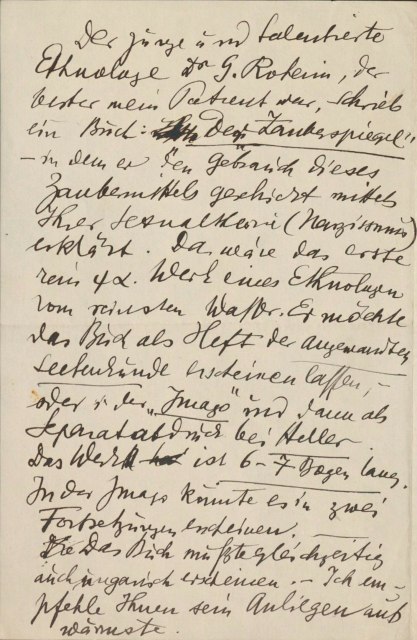 Der junge und talentierte
Ethnologe Dr G. Roheim, der
bisher mein Patient war, schrieb
ein Buch: "Der Zauberspiegel"
– in dem er den Gebrauch dieses
Zaubermittels geschickt mittels
Ihrer Sexualtheorie (Narzissmus)
erklärt. Das wäre das erste
rein ψα. Werk eines Ethnologen
vom reinsten Wasser. Er möchte
das Buch als Heft der angewandten
Seelenkunde erscheinen lassen, –
oder in der "Imago" und dann als
Separatabdruck bei Heller.
Das Werk ist 6–7 Bogen lang.
In der Imago könnte es in zwei
Fortsetzungen erscheinen.
Das Buch müßte gleichzeitig
auch ungarisch erscheinen. – Ich em-
pfehle Ihnen sein Anliegen auf's
wärmste.